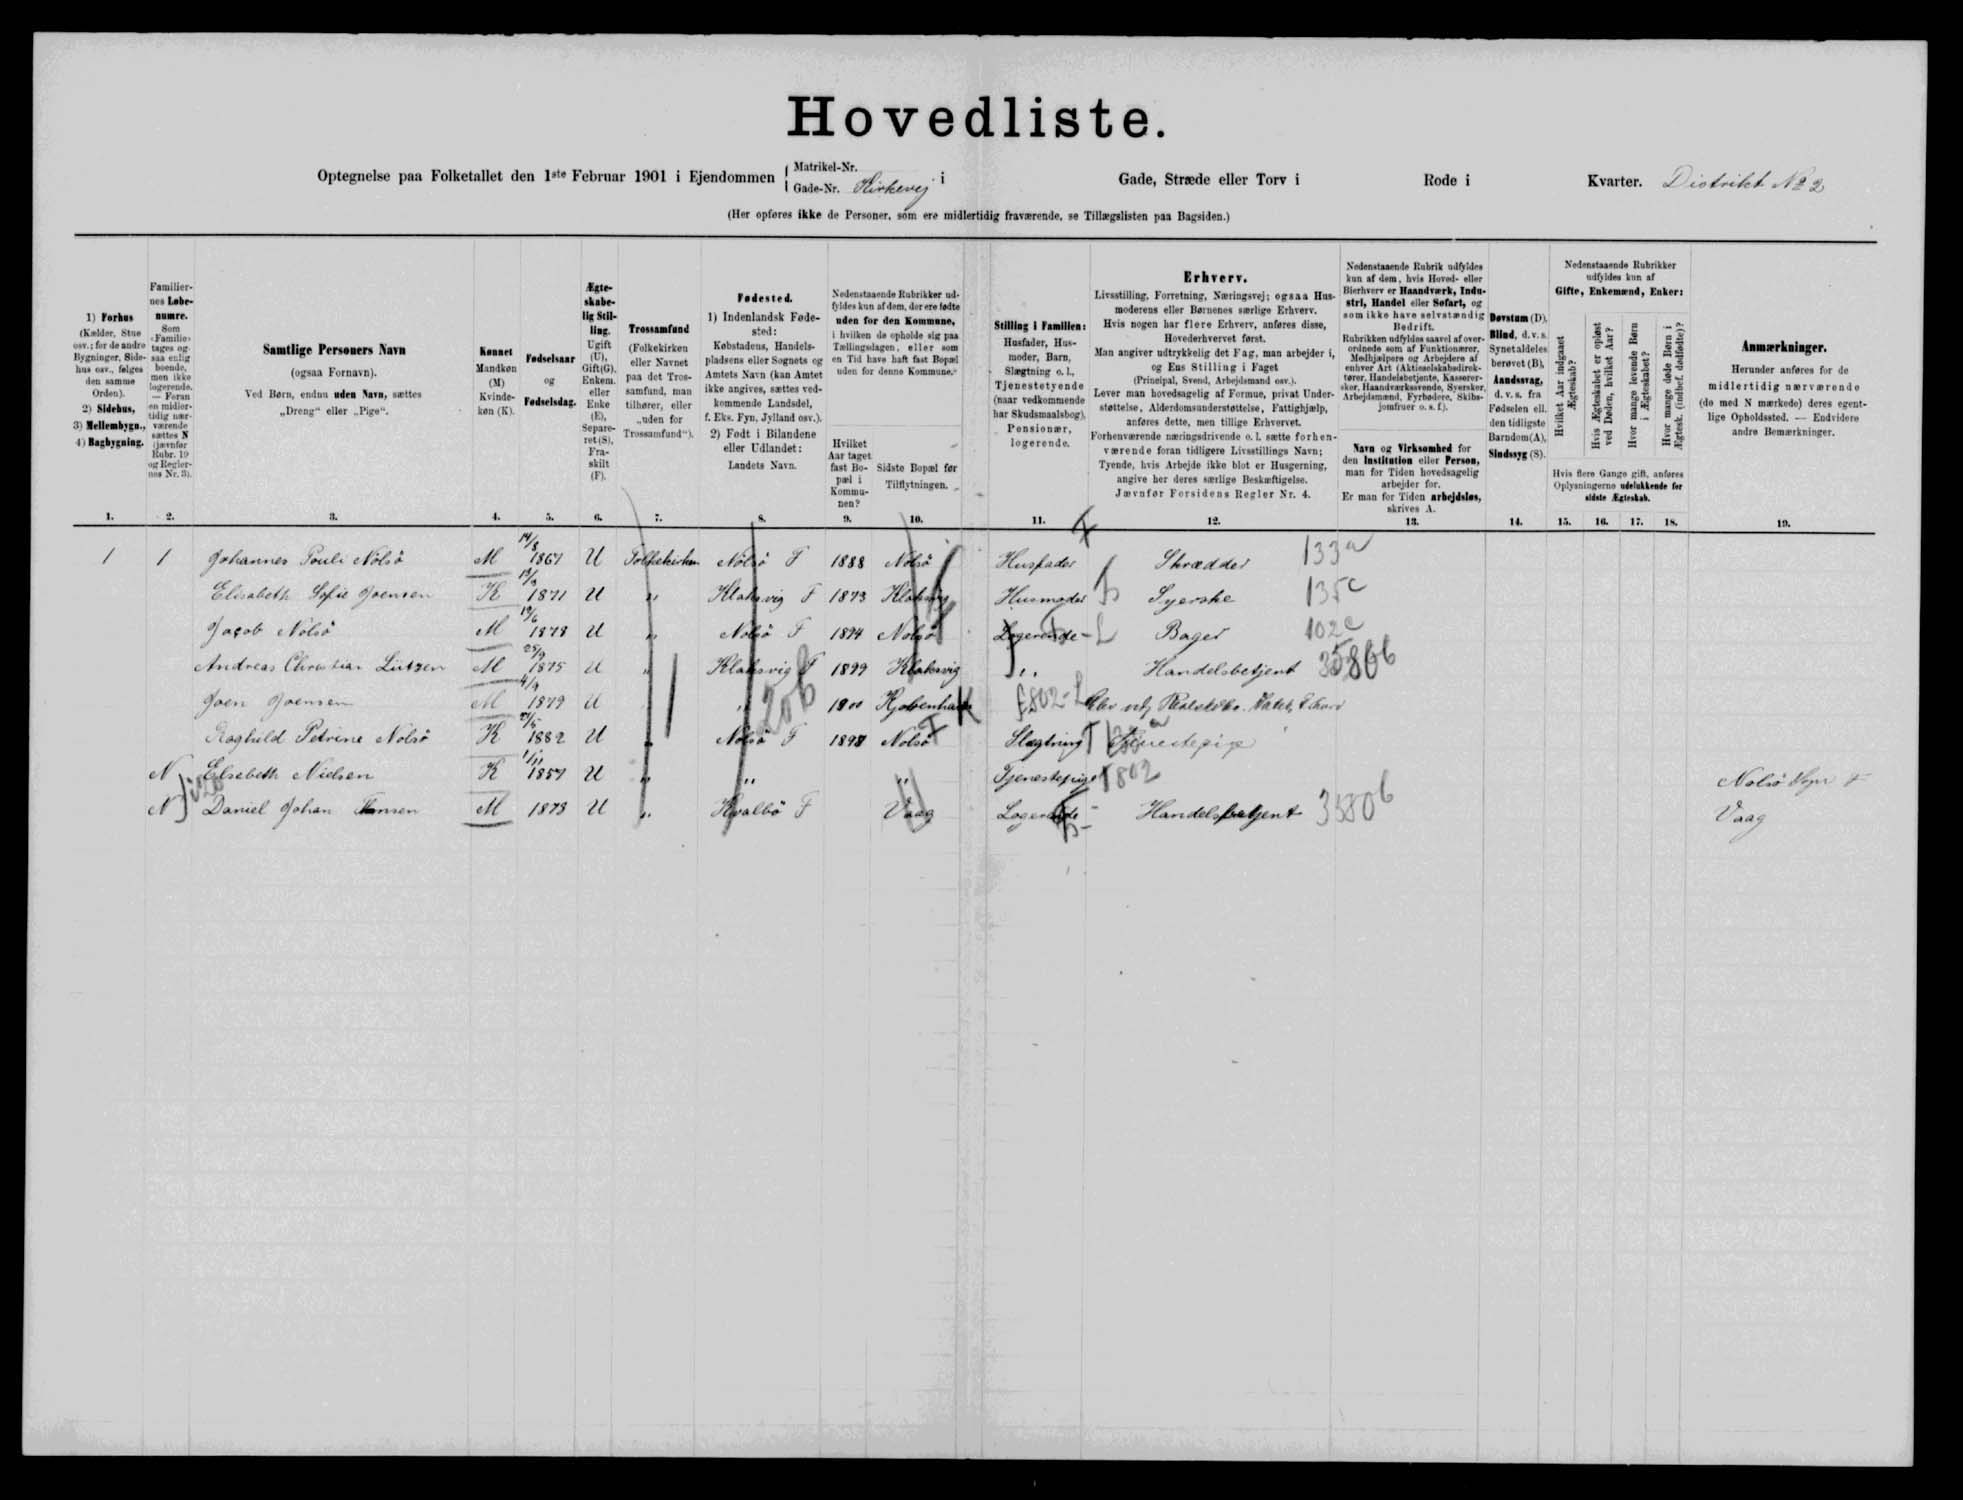 Hovedliste.
Optegnelse paa Folketallet den 1ste Februar 1901 i Ejendommen { Matrikel-Nr. Gade-Nr. Kirkevej i Gade, Stræde eller Torv i Rode i Kvarter. Distrikt No 2
(Her opføres ikke de Personer, som ere midlertidig fraværende, se Tillægslisten paa Bagsiden.)
1) Forhus (Kælder, Stue osv.; for de andre Bygninger, Sidehus osv., følges den samme Orden). 2) Sidehus, 3) Mellembygn., 4) Bagbygning.
Familiernes Løbenumre. Som «Familie» tages ogsaa enlig boende, men ikke logerende. — Foran en midlertidig nærværende sættes N (jævnfør Rubr. 19 og Reglernes Nr. 3).
Samtlige Personers Navn (ogsaa Fornavn). Ved Børn, endnu uden Navn, sættes „Dreng“ eller „Pige“.
Kønnet Mandkøn (M) Kvindekøn (K).
Fødselsaar og Fødselsdag.
Ægteskabelig Stilling. Ugift (U), Gift(G). Enkem. eller Enke (E), Separeret(S), Fraskilt (F).
Trossamfund (Folkekirken eller Navnet paa det Trossamfund, man tilhører, eller „uden for Trossamfund“).
Fødested. 1) Indenlandsk Fødested: Købstadens, Handelspladsens eller Sognets og Amtets Navn (kan Amtet ikke angives, sættes vedkommende Landsdel, f. Eks. Fyn, Jylland osv.). 2) Født i Bilandene eller Udlandet: Landets Navn.
Nedenstaaende Rubrikker udfyldes kun af dem, der ere fødte uden for den Kommune, i hvilken de opholde sig paa Tællingsdagen, eller som en Tid have haft fast Bopæl uden for denne Kommune.
Hvilket Aar taget fast Bopæl i Kommunen?
Sidste Bopæl før Tilflytningen.
Stilling i Familien: Husfader, Husmoder, Barn, Slægtning o. l., Tjenestetyende (naar vedkommende har Skudsmaalsbog), Pensionær, logerende.
Erhverv.
Livsstilling, Forretning, Næringsvej; ogsaa Husmoderens eller Børnenes særlige Erhverv.
Hvis nogen har flere Erhverv, anføres disse, Hovederhvervet først.
Man angiver udtrykkelig det Fag, man arbejder i, og Ens Stilling i Faget (Principal, Svend, Arbejdsmand osv.).
Lever man hovedsagelig af Formue, privat Understøttelse, Alderdomsunderstøttelse, Fattighjælp, anføres dette, men tillige Erhvervet.
Forhenværende næringsdrivende o. l. sætte forhenværende foran tidligere Livsstillings Navn; Tyende, hvis Arbejde ikke blot er Husgerning, angive her deres særlige Beskæftigelse.
Jævnfør Forsidens Regler Nr. 4.
Nedenstaaende Rubrik udfyldes kun af dem, hvis Hoved- eller Bierhverv er Haandværk, Industri, Handel eller Søfart, og som ikke have selvstændig Bedrift.
Rubrikken udfyldes saavel af overordnede som af Funktionærer, Medhjælpere og Arbejdere af enhver Art (Aktieselskabsdirektører, Handelsbetjente, Kasserersker, Haandværkssvende, Syersker, Arbejdsmænd, Fyrbødere, Skibsjomfruer o. s. f.).
Navn og Virksomhed for den Institution eller Person, man for Tiden hovedsagelig arbejder for. Er man for Tiden arbejdsløs, skrives A.
Døvstum (D). Blind, d. v. s. Synet aldeles berøvet (B), Aandssvag, d. v. s. fra Fødselen ell. den tidligste Barndom (A), Sindssyg (S).
Nedenstaaende Rubrikker udfyldes kun af Gifte, Enkemænd, Enker:
Hvilket Aar indgaaet Ægteskab?
Hvis Ægteskabet er opløst ved Døden, hvilket Aar?
Hvor mange levende Børn i Ægteskabet?
Hvor mange døde Børn i Ægtesk. (indbef. dødfødte)?
Hvis flere Gange gift, anføres Oplysningerne udelukkende for sidste Ægteskab.
Anmærkninger. Herunder anføres for de midlertidig nærværende (de med N mærkede) deres egentlige Opholdssted. — Endvidere andre Bemærkninger.
1. 2. 3. 4. 5. 6. 7. 8. 9. 10. 11. 12. 13. 14. 15. 16. 17. 18. 19.
1 1 Johannes Pouli Nolsö M 14/8 1867 U Folkekirken Nolsö F 1888 Nolsö Husfader Skrædder 133a
Elisabeth Sofie Joensen K 1871 U „ Klaksvig F 1893 Klaksvig Husmoder Syerske 135c
Jacob Nolsö M 1878 U „ Nolsö F 1894 Nolsö Logerende - L Bager 102c
Andreas Christian Lützen M 1875 U „ Klaksvig F 1899 Klaksvig „ Handelsbetjent
Joen Joensen M 1879 U „ „ 1900 Kjøbenhavn K £802-L Elev
Raghild Petrine Nolsö K 1882 U „ Nolsö F Nolsö Slægtning T Tjenestepige
N Elsebeth Nielsen K 1/11 1857 U „ „ „ Tjenestepige T 802 Nolsö
N Daniel Johan Hansen M 1873 U „ Hvalbö F Vaag Logerende - Handelsbetjent 3580b Vaag